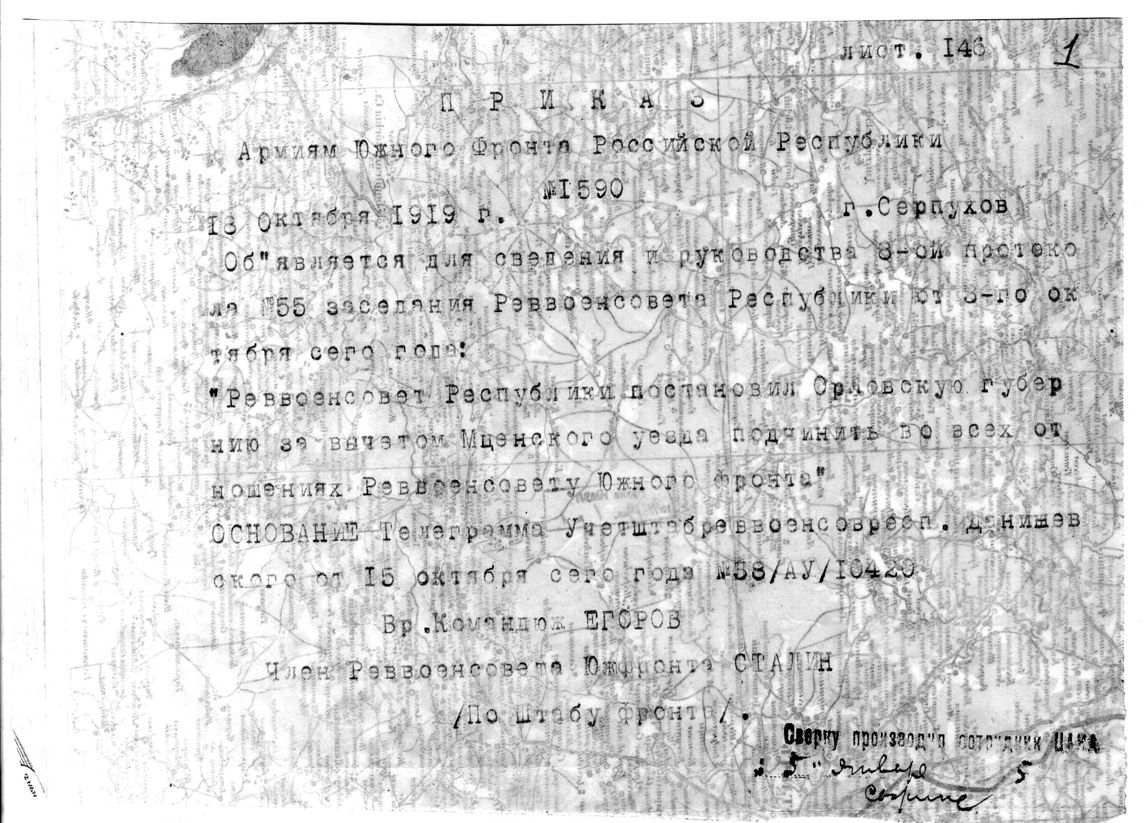 лист. 146 1
П Р И К А З
Армиям Южного Фронта Российской Республики
№1590
18 Октября 1919 г. г.Серпухов
Об"является для сведения и руководства 8-ой протоко
ла №55 заседания Реввоенсовета Республики от 3-го ок
тября сего года:
"Реввоенсовет Республики постановил Орловскую губер
нию за вычетом Мценского уезда подчинить во всех от
ношениях Реввоенсовету Южного фронта"
ОСНОВАНИЕ Телеграмма Учетштабреввоенсовресп. Данишев
ского от 15 октября сего года №58/АУ/10420
Вр.Командюж ЕГОРОВ
Член Реввоенсовета Южфронта СТАЛИН
/По Штабу фронта/.
Сверку производил сотрудник ЦАКА
5" января 5